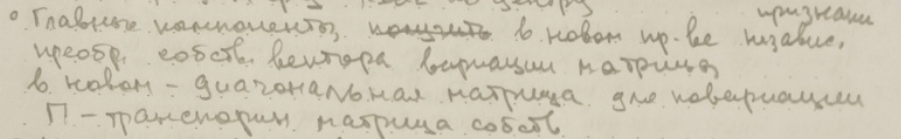 ° Главные компоненты, в новом пр-ве независ. признаки
преобр. собств. вектора вариации матрица
в новом - диагональная матрица для ковариации
П - транспорин матрица собств